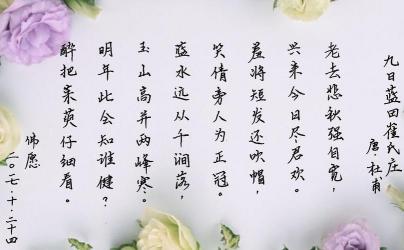 九日蓝田崔氏庄
唐·杜甫
老去悲秋强自宽，
兴来今日尽君欢。
羞将短发还吹帽，
笑倩旁人为正冠。
蓝水远从千涧落，
玉山高并两峰寒。
明年此会知谁健？
醉把茱萸仔细看。
佛愿
二〇一七·十·二十四